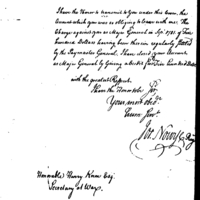 I have the Honor to transmit to you under this Cover, the
Account which you was so obliging to leave with me. The
Charge against you as Major General in Sep.r 1781. of Two
hundred Dollars having been therein regularly Stated
by the Paymaster General. I have closed your Account
as Major General by Giving
with the greatest Respect.
I have the Honor to be Sir
Your most obed.t
Hum. Serv.t
Honorable Henry Knox Esq.
Secretary at War.